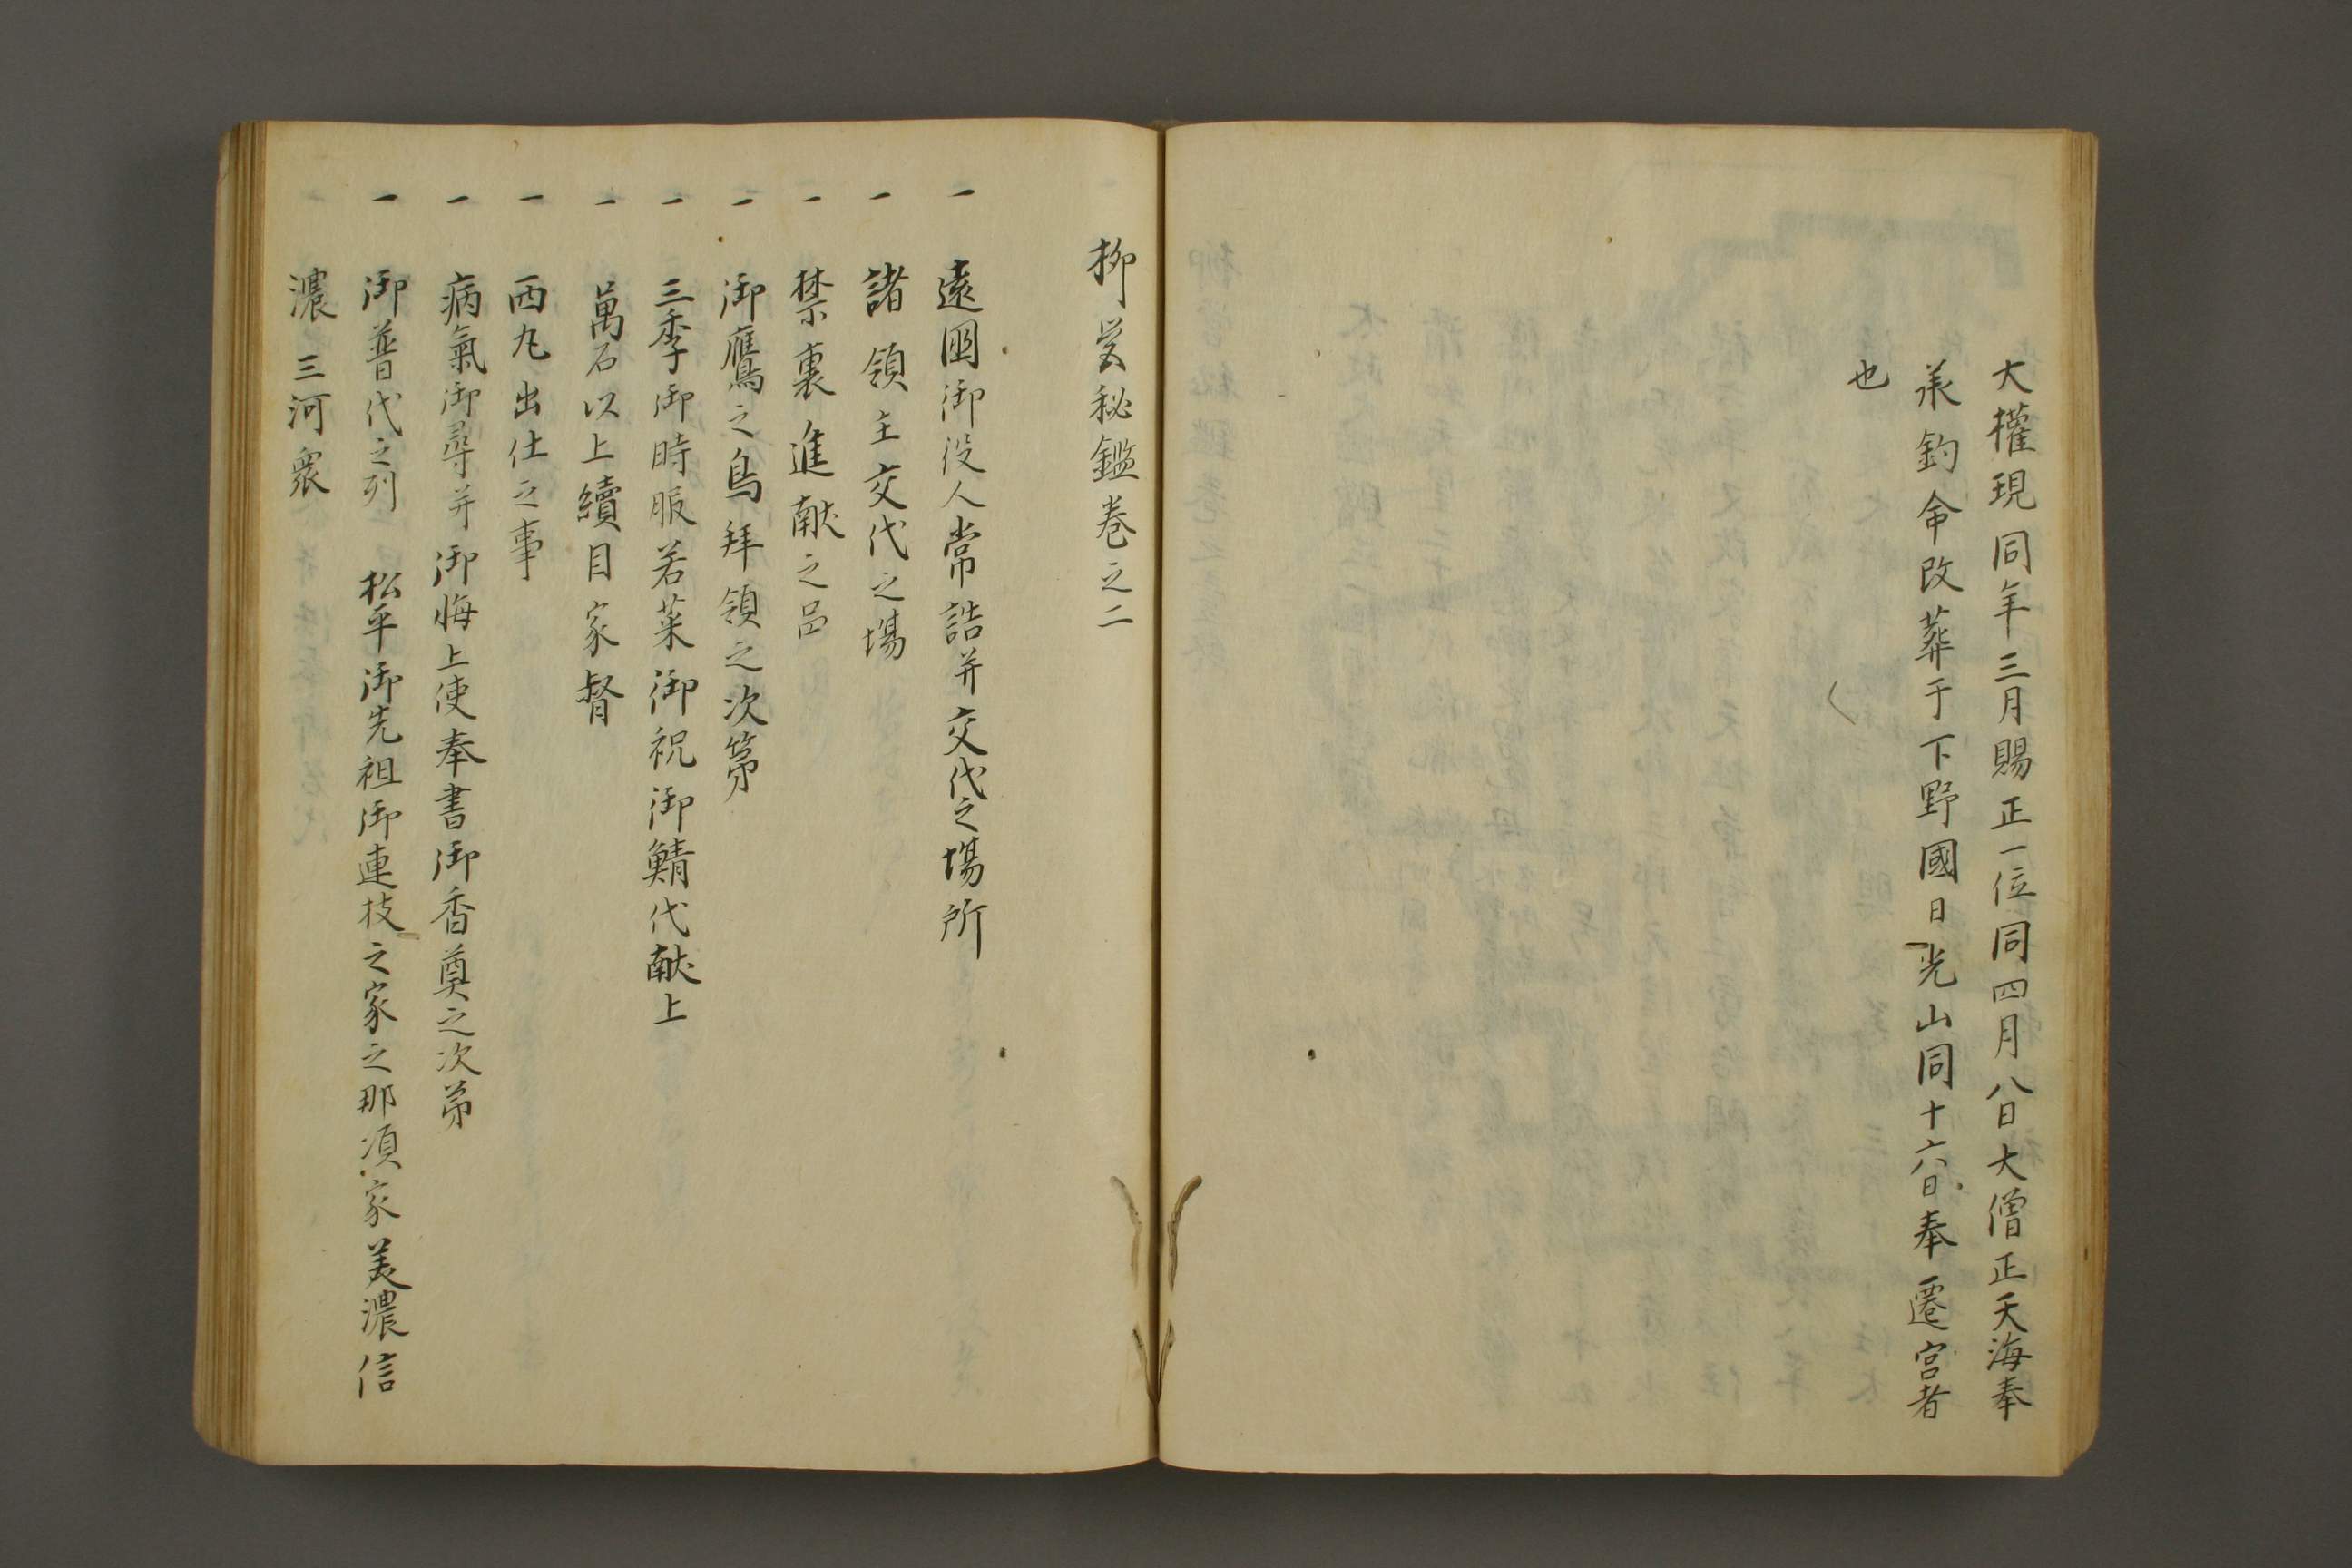 大權現同年三月賜正一位同四月八日大僧正天海奉
承鈞命改葬于下野國日光山同十六日奉遷宮者
也
柳営秘鑑巻之二
一 遠國御役人常詰并交代之場所
一 諸領主交代之場
一 禁裏進献之品
一 御鷹之鳥拜領之次第
一 三季御時服若菜御祝御鯖代献上
一 萬石以上續目家督
一 西丸出仕之事
一 病氣御尋并御悔上使奉書御香奠之次第
一 御普代之列 松平御先祖御連枝之家之那須家美濃信
濃 三河衆